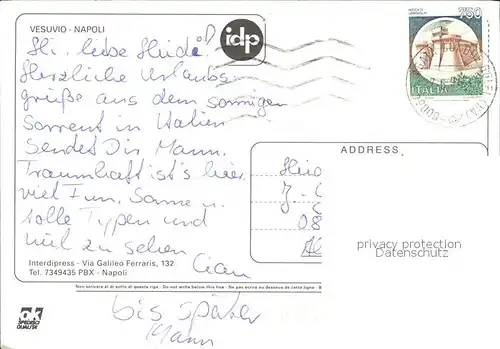 VESUVIO - NAPOLI
idp
750
ITALIA
Hi, liebe Heidi!
Herzliche Urlaubs-
grüße aus dem sonnigen
Sorrent in Italien
sendet Dir Mann.
Traumhaft ist's hier.
viel Fun, Sonne u.
tolle Typen und
viel zu sehen
Ciao
ADDRESS
privacy protection
Datenschutz
Interdipress - Via Galileo Ferraris, 132
Tel. 7349435 PBX - Napoli
Non scrivere al di sotto di questa riga - Do not write below this line - Ne pas écrire au dessous de cette ligne - B
bis später
Mann
ak